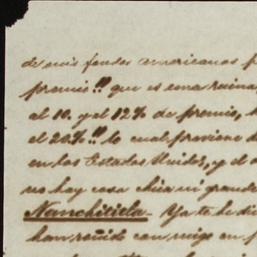 de mis fondos americanos p
premio!! que es una ruina,
al 10. y el 12% de premio,
el 20%!! lo cual proviene d
en los Estados Unidos, y el
no hay cosa chica ni grande
Nanchititla. Ya te he di
han reñido conmigo en p